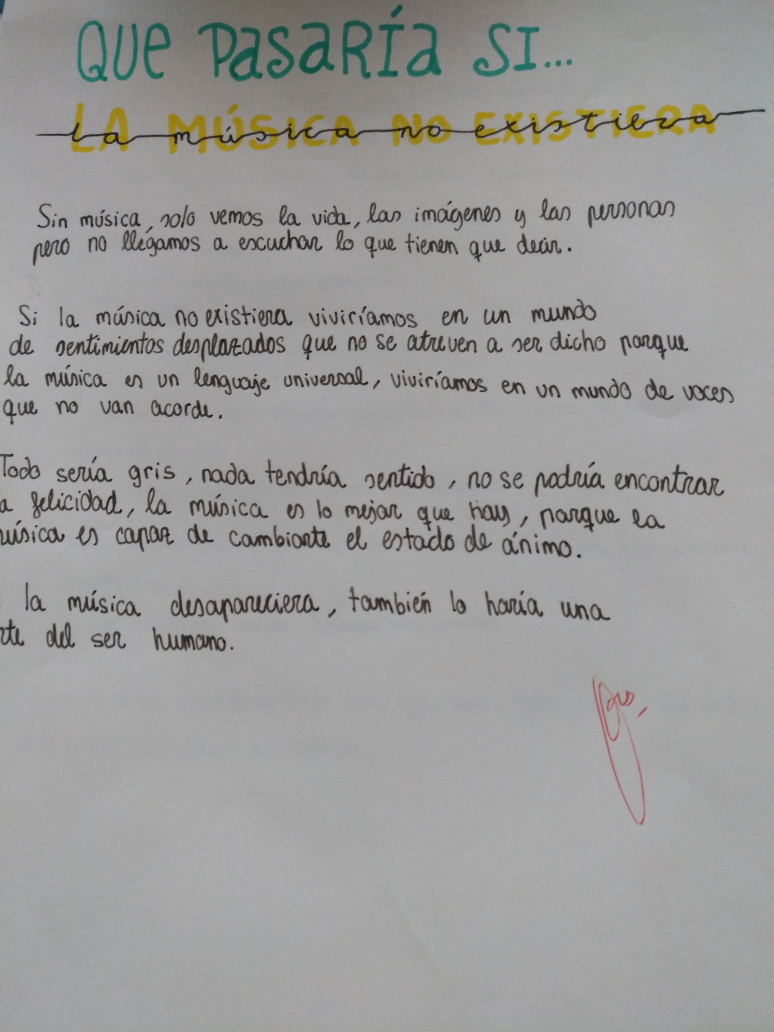 QUE PASARÍA SI...
LA MÚSICA NO EXISTIERA
Sin música, solo vemos la vida, las imágenes y las personas
pero no llegamos a escuchar lo que tienen que decir.
Si la música no existiera viviríamos en un mundo
de sentimientos desplazados que no se atreven a ser dicho porque
la música es un lenguaje universal, viviríamos en un mundo de voces
que no van acorde.
Todo sería gris, nada tendría sentido, no se podría encontrar
a felicidad, la música es lo mejor que hay, porque la
música es capaz de cambiarte el estado de ánimo.
la música desapareciera, también lo haría una
rte del ser humano.